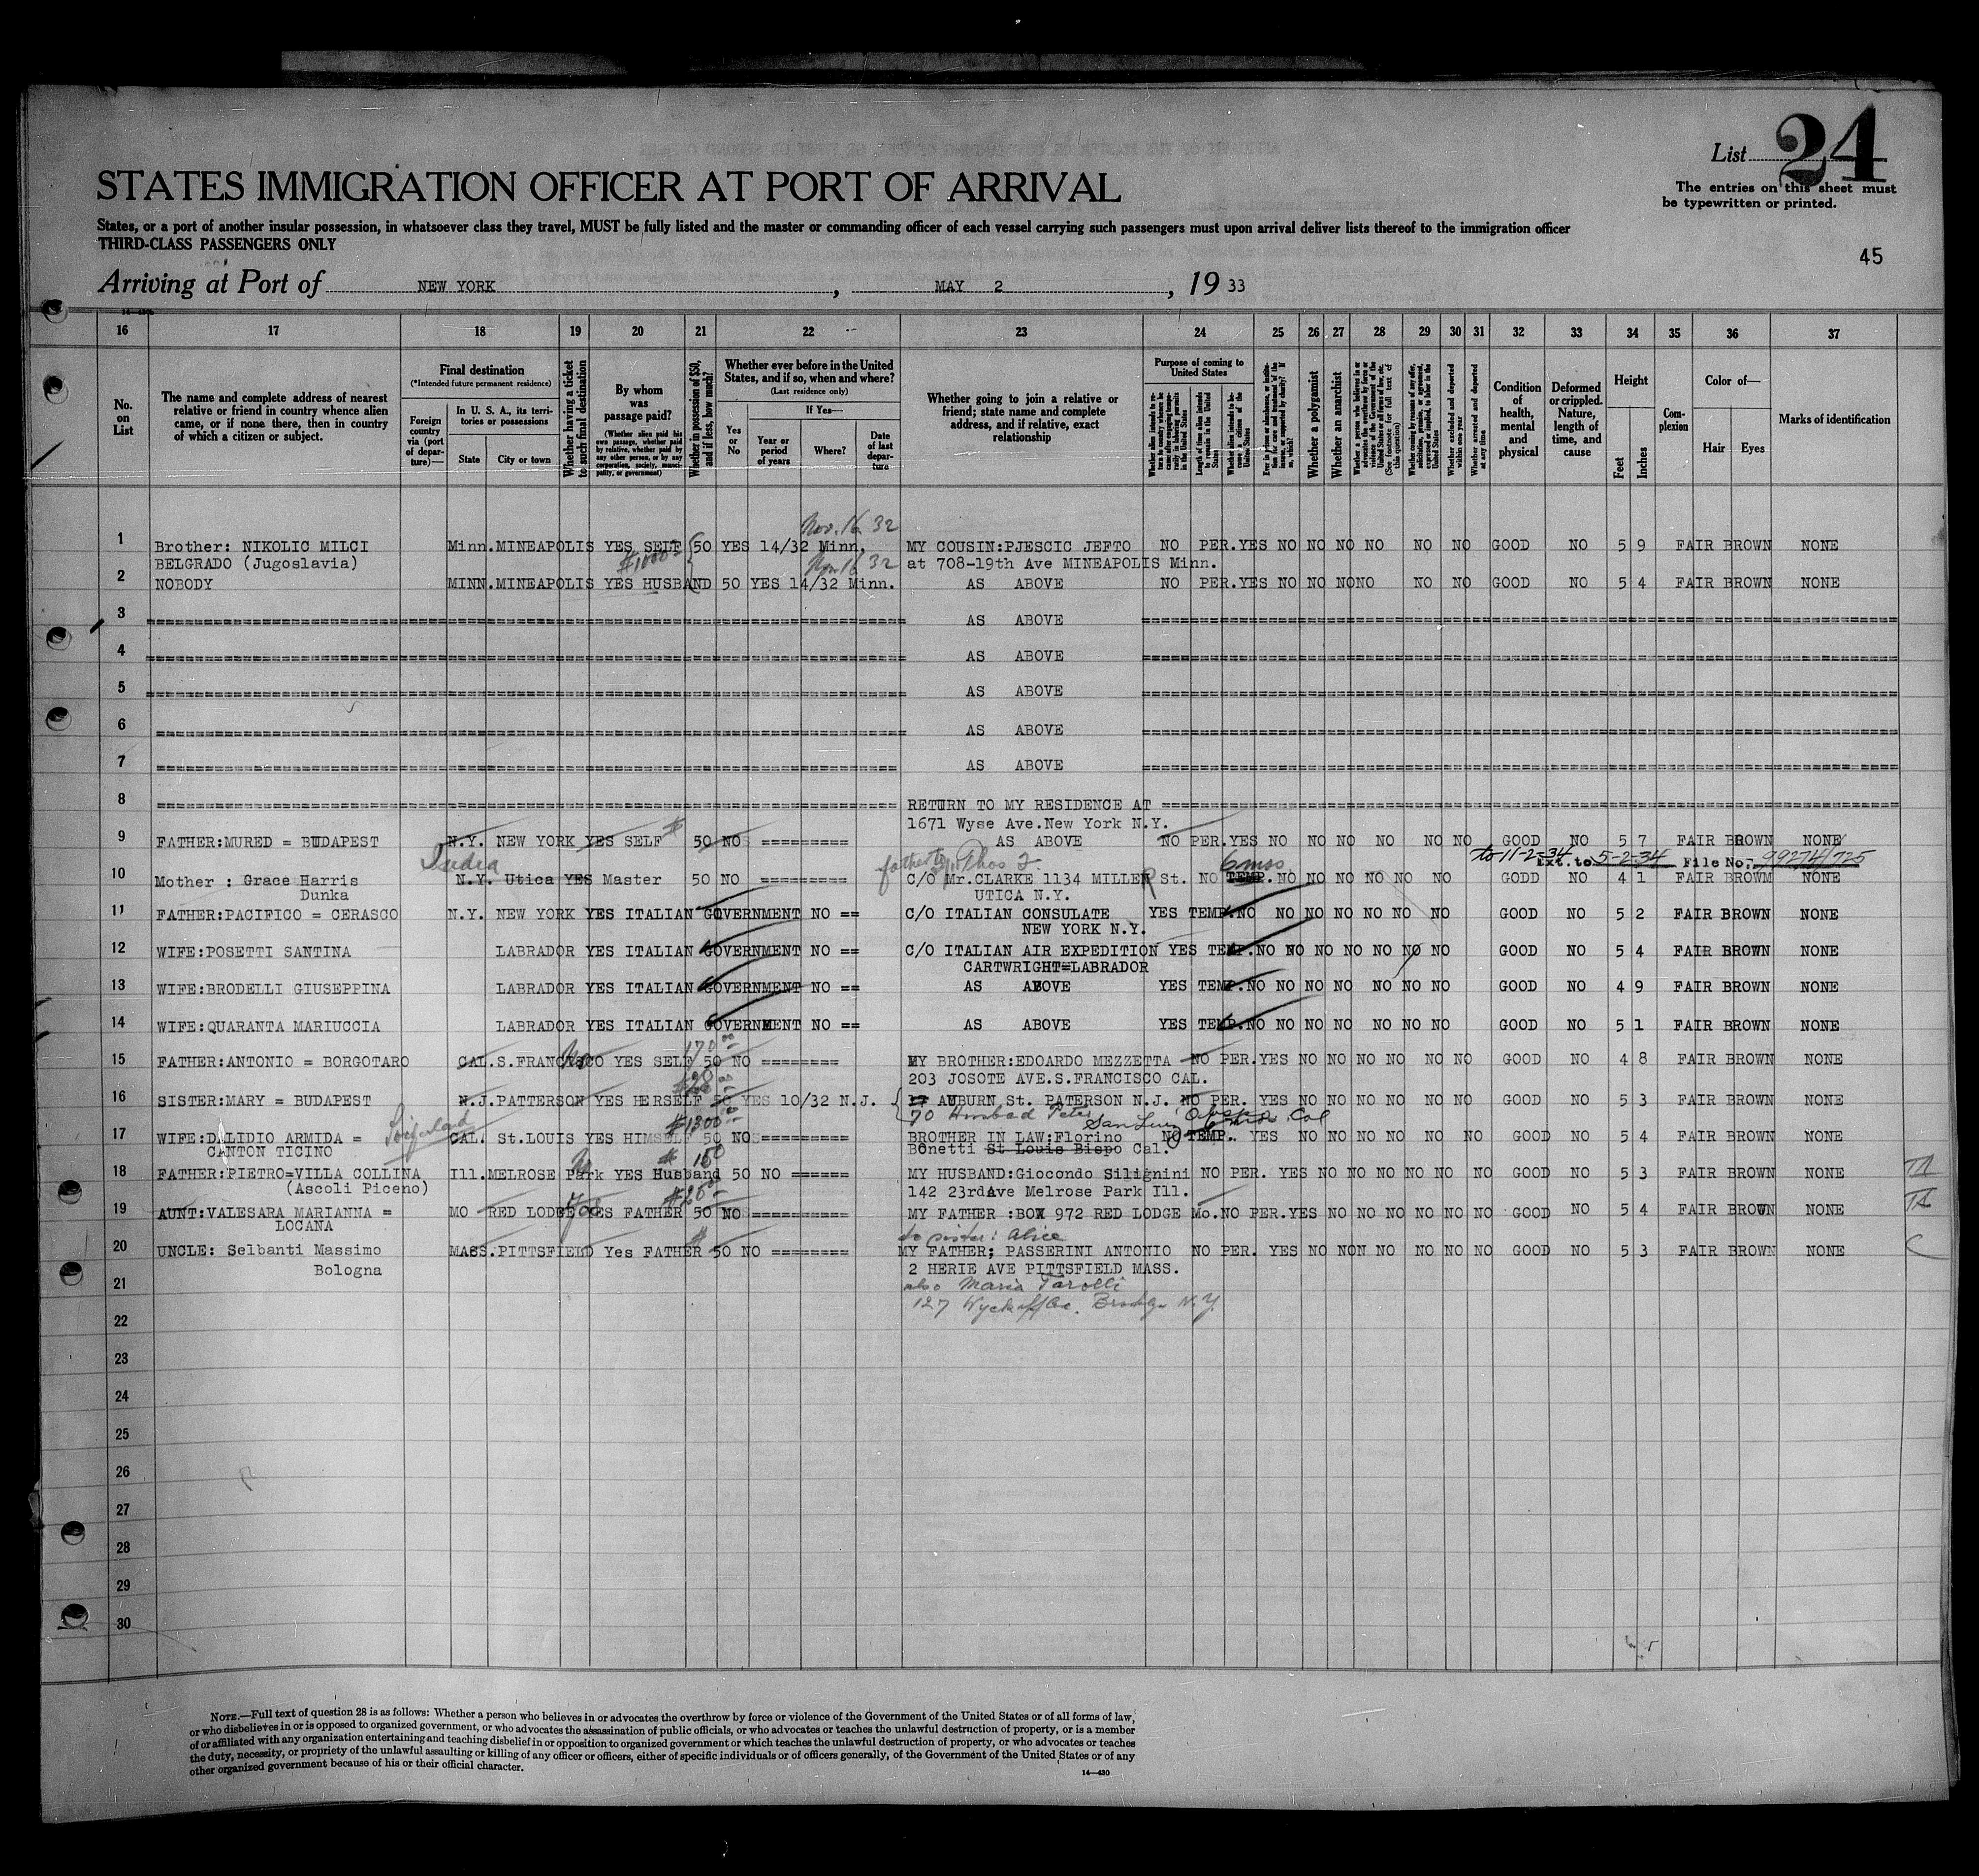 List 24
STATES IMMIGRATION OFFICER AT PORT OF ARRIVAL
The entries on this sheet must
be typewritten or printed.
States, or a port of another insular possession, in whatsoever class they travel, MUST be fully listed and the master or commanding officer of each vessel carrying such passengers must upon arrival deliver lists thereof to the immigration officer
THIRD-CLASS PASSENGERS ONLY
45
Arriving at Port of NEW YORK, MAY 2, 19 33
16 17 18 19 20 21 22 23 24 25 26 27 28 29 30 31 32 33 34 35 36 37
No.
on
List
The name and complete address of nearest
relative or friend in country whence alien
came, or if none there, then in country
of which a citizen or subject.
Final destination
(*Intended future permanent residence)
Foreign
country
via (port
of depar-
ture)—
In U. S. A., its terri-
tories or possessions
State
City or town
Whether having a ticket
to such final destination
By whom
was
passage paid?
(Whether alien paid his
own passage, whether paid
by relative, whether paid by
any other person, or by any
corporation, society, munici-
pality, or government)
Whether in possession of $50,
and if less, how much?
Whether ever before in the United
States, and if so, when and where?
(Last residence only)
Yes
or
No
If Yes—
Year or
period
of years
Where?
Date
of last
depar-
ture
Whether going to join a relative or
friend; state name and complete
address, and if relative, exact
relationship
Purpose of coming to
United States
Length of time alien intends
to remain in the United
States
Whether alien intends to be-
come a citizen of the
United States
Whether a polygamist
Whether an anarchist
Whether excluded and deported
within one year
Whether arrested and deported
at any time
Condition
of
health,
mental
and
physical
Deformed
or crippled.
Nature,
length of
time, and
cause
Height
Feet
Inches
Com-
plexion
Color of—
Hair
Eyes
Marks of identification
Nov. 16 32
1 Brother: NIKOLIC MILCI Minn. MINEAPOLIS YES SELF 50 YES 14/32 Minn. MY COUSIN:PJESCIC JEFTO NO PER. YES NO NO NO NO NO NO GOOD NO 5 9 FAIR BROWN NONE
BELGRADO (Jugoslavia) $1000 Nov 16 32 at 708-19th Ave MINEAPOLIS Minn.
2 NOBODY MINN. MINEAPOLIS YES HUSBAND 50 YES 14/32 Minn. AS ABOVE NO PER. YES NO NO NO NO NO NO GOOD NO 5 4 FAIR BROWN NONE
3 AS ABOVE
4 AS ABOVE
5 AS ABOVE
6 AS ABOVE
7 AS ABOVE
8 RETURN TO MY RESIDENCE AT
1671 Wyse Ave. New York N.Y.
9 FATHER:MURED = BUDAPEST N.Y. NEW YORK YES SELF 50 NO ========= AS ABOVE NO PER. YES NO NO NO NO NO NO GOOD NO 5 7 FAIR BROWN NONE
India Thos 6 mos to 11-2-34 Ext. to 5-2-34 File No. 99274/725
10 Mother : Grace Harris N.Y. Utica YES Master 50 NO ========= C/O Mr. CLARKE 1134 MILLER St. NO TEMP. NO NO NO NO NO NO GODD NO 4 1 FAIR BROWM NONE
Dunka UTICA N.Y.
11 FATHER:PACIFICO = CERASCO N.Y. NEW YORK YES ITALIAN GOVERNMENT NO == C/O ITALIAN CONSULATE YES TEMP. NO NO NO NO NO NO NO GOOD NO 5 2 FAIR BROWN NONE
NEW YORK N.Y.
12 WIFE:POSETTI SANTINA LABRADOR YES ITALIAN GOVERNMENT NO == C/O ITALIAN AIR EXPEDITION YES TEMP. NO NO NO NO NO NO NO GOOD NO 5 4 FAIR BROWN NONE
CARTWRIGHT=LABRADOR
13 WIFE:BRODELLI GIUSEPPINA LABRADOR YES ITALIAN GOVERNMENT NO == AS ABOVE YES TEMP. NO NO NO NO NO NO NO GOOD NO 4 9 FAIR BROWN NONE
14 WIFE:QUARANTA MARIUCCIA LABRADOR YES ITALIAN GOVERNMENT NO == AS ABOVE YES TEMP. NO NO NO NO NO NO NO GOOD NO 5 1 FAIR BROWN NONE
170
15 FATHER:ANTONIO = BORGOTARO CAL. S.FRANCISCO YES SELF 50 NO ======== MY BROTHER:EDOARDO MEZZETTA NO PER. YES NO NO NO NO NO NO GOOD NO 4 8 FAIR BROWN NONE
203 JOSOTE AVE. S.FRANCISCO CAL.
16 SISTER:MARY = BUDAPEST N.J. PATTERSON YES HERSELF 50 YES 10/32 N.J. AUBURN St. PATERSON N.J. NO PER. YES NO NO NO NO NO NO GOOD NO 5 3 FAIR BROWN NONE
$1300 70 Peter San Luis Obispo Cal
17 WIFE:DALIDIO ARMIDA = CAL. St.LOUIS YES HIMSELF 50 NO ========= BROTHER IN LAW:Florino NO TEMP. YES NO NO NO NO NO NO GOOD NO 5 4 FAIR BROWN NONE
CANTON TICINO Bonetti St Louis Bispo Cal.
18 FATHER:PIETRO=VILLA COLLINA Ill. MELROSE Park YES Husband 50 NO ====== MY HUSBAND:Giocondo Silignini NO PER. YES NO NO NO NO NO NO GOOD NO 5 3 FAIR BROWN NONE
(Ascoli Piceno) 142 23rd Ave Melrose Park Ill.
19 AUNT:VALESARA MARIANNA = MO RED LODGE YES FATHER 50 NO ========== MY FATHER :BOX 972 RED LODGE Mo. NO PER. YES NO NO NO NO NO NO GOOD NO 5 4 FAIR BROWN NONE
LOCANA
to sister: Alice
20 UNCLE: Selbanti Massimo MASS. PITTSFIELD Yes FATHER 50 NO ======== MY FATHER; PASSERINI ANTONIO NO PER. YES NO NON NO NO NO NO GOOD NO 5 3 FAIR BROWN NONE
Bologna 2 HERIE AVE PITTSFIELD MASS.
21 also Maria Tarolli
127 Wyckoff Av. Brooklyn N.Y.
22
23
24
25
26
27
28
29
30
NOTE.—Full text of question 28 is as follows: Whether a person who believes in or advocates the overthrow by force or violence of the Government of the United States or of all forms of law,
or who disbelieves in or is opposed to organized government, or who advocates the assassination of public officials, or who advocates or teaches the unlawful destruction of property, or is a member
of or affiliated with any organization entertaining and teaching disbelief in or opposition to organized government or which teaches the unlawful destruction of property, or who advocates or teaches
the duty, necessity, or propriety of the unlawful assaulting or killing of any officer or officers, either of specific individuals or of officers generally, of the Government of the United States or of any
other organized government because of his or their official character.
14—430